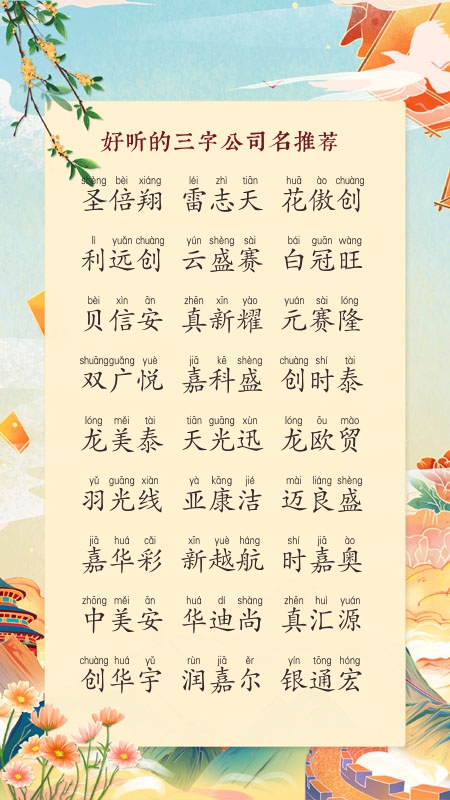 好听的三字公司名推荐
shèng bèi xiáng léi zhì tiān huā ào chuàng
圣倍翔 雷志天 花傲创
lì yuǎn chuàng yún shèng sài bái guān wàng
利远创 云盛赛 白冠旺
bèi xìn ān zhēn xīn yào yuán sài lóng
贝信安 真新耀 元赛隆
shuāng guǎng yuè jiā kē shèng chuàng shí tài
双广悦 嘉科盛 创时泰
lóng měi tài tiān guāng xùn lóng ōu mào
龙美泰 天光迅 龙欧贸
yǔ guāng xiàn yà kāng jié mài liáng shèng
羽光线 亚康洁 迈良盛
jiā huá cǎi xīn yuè háng shí jiā ào
嘉华彩 新越航 时嘉奥
zhōng měi ān huá dí shàng zhēn huì yuán
中美安 华迪尚 真汇源
chuàng huá yǔ rùn jiā ěr yín tōng hóng
创华宇 润嘉尔 银通宏